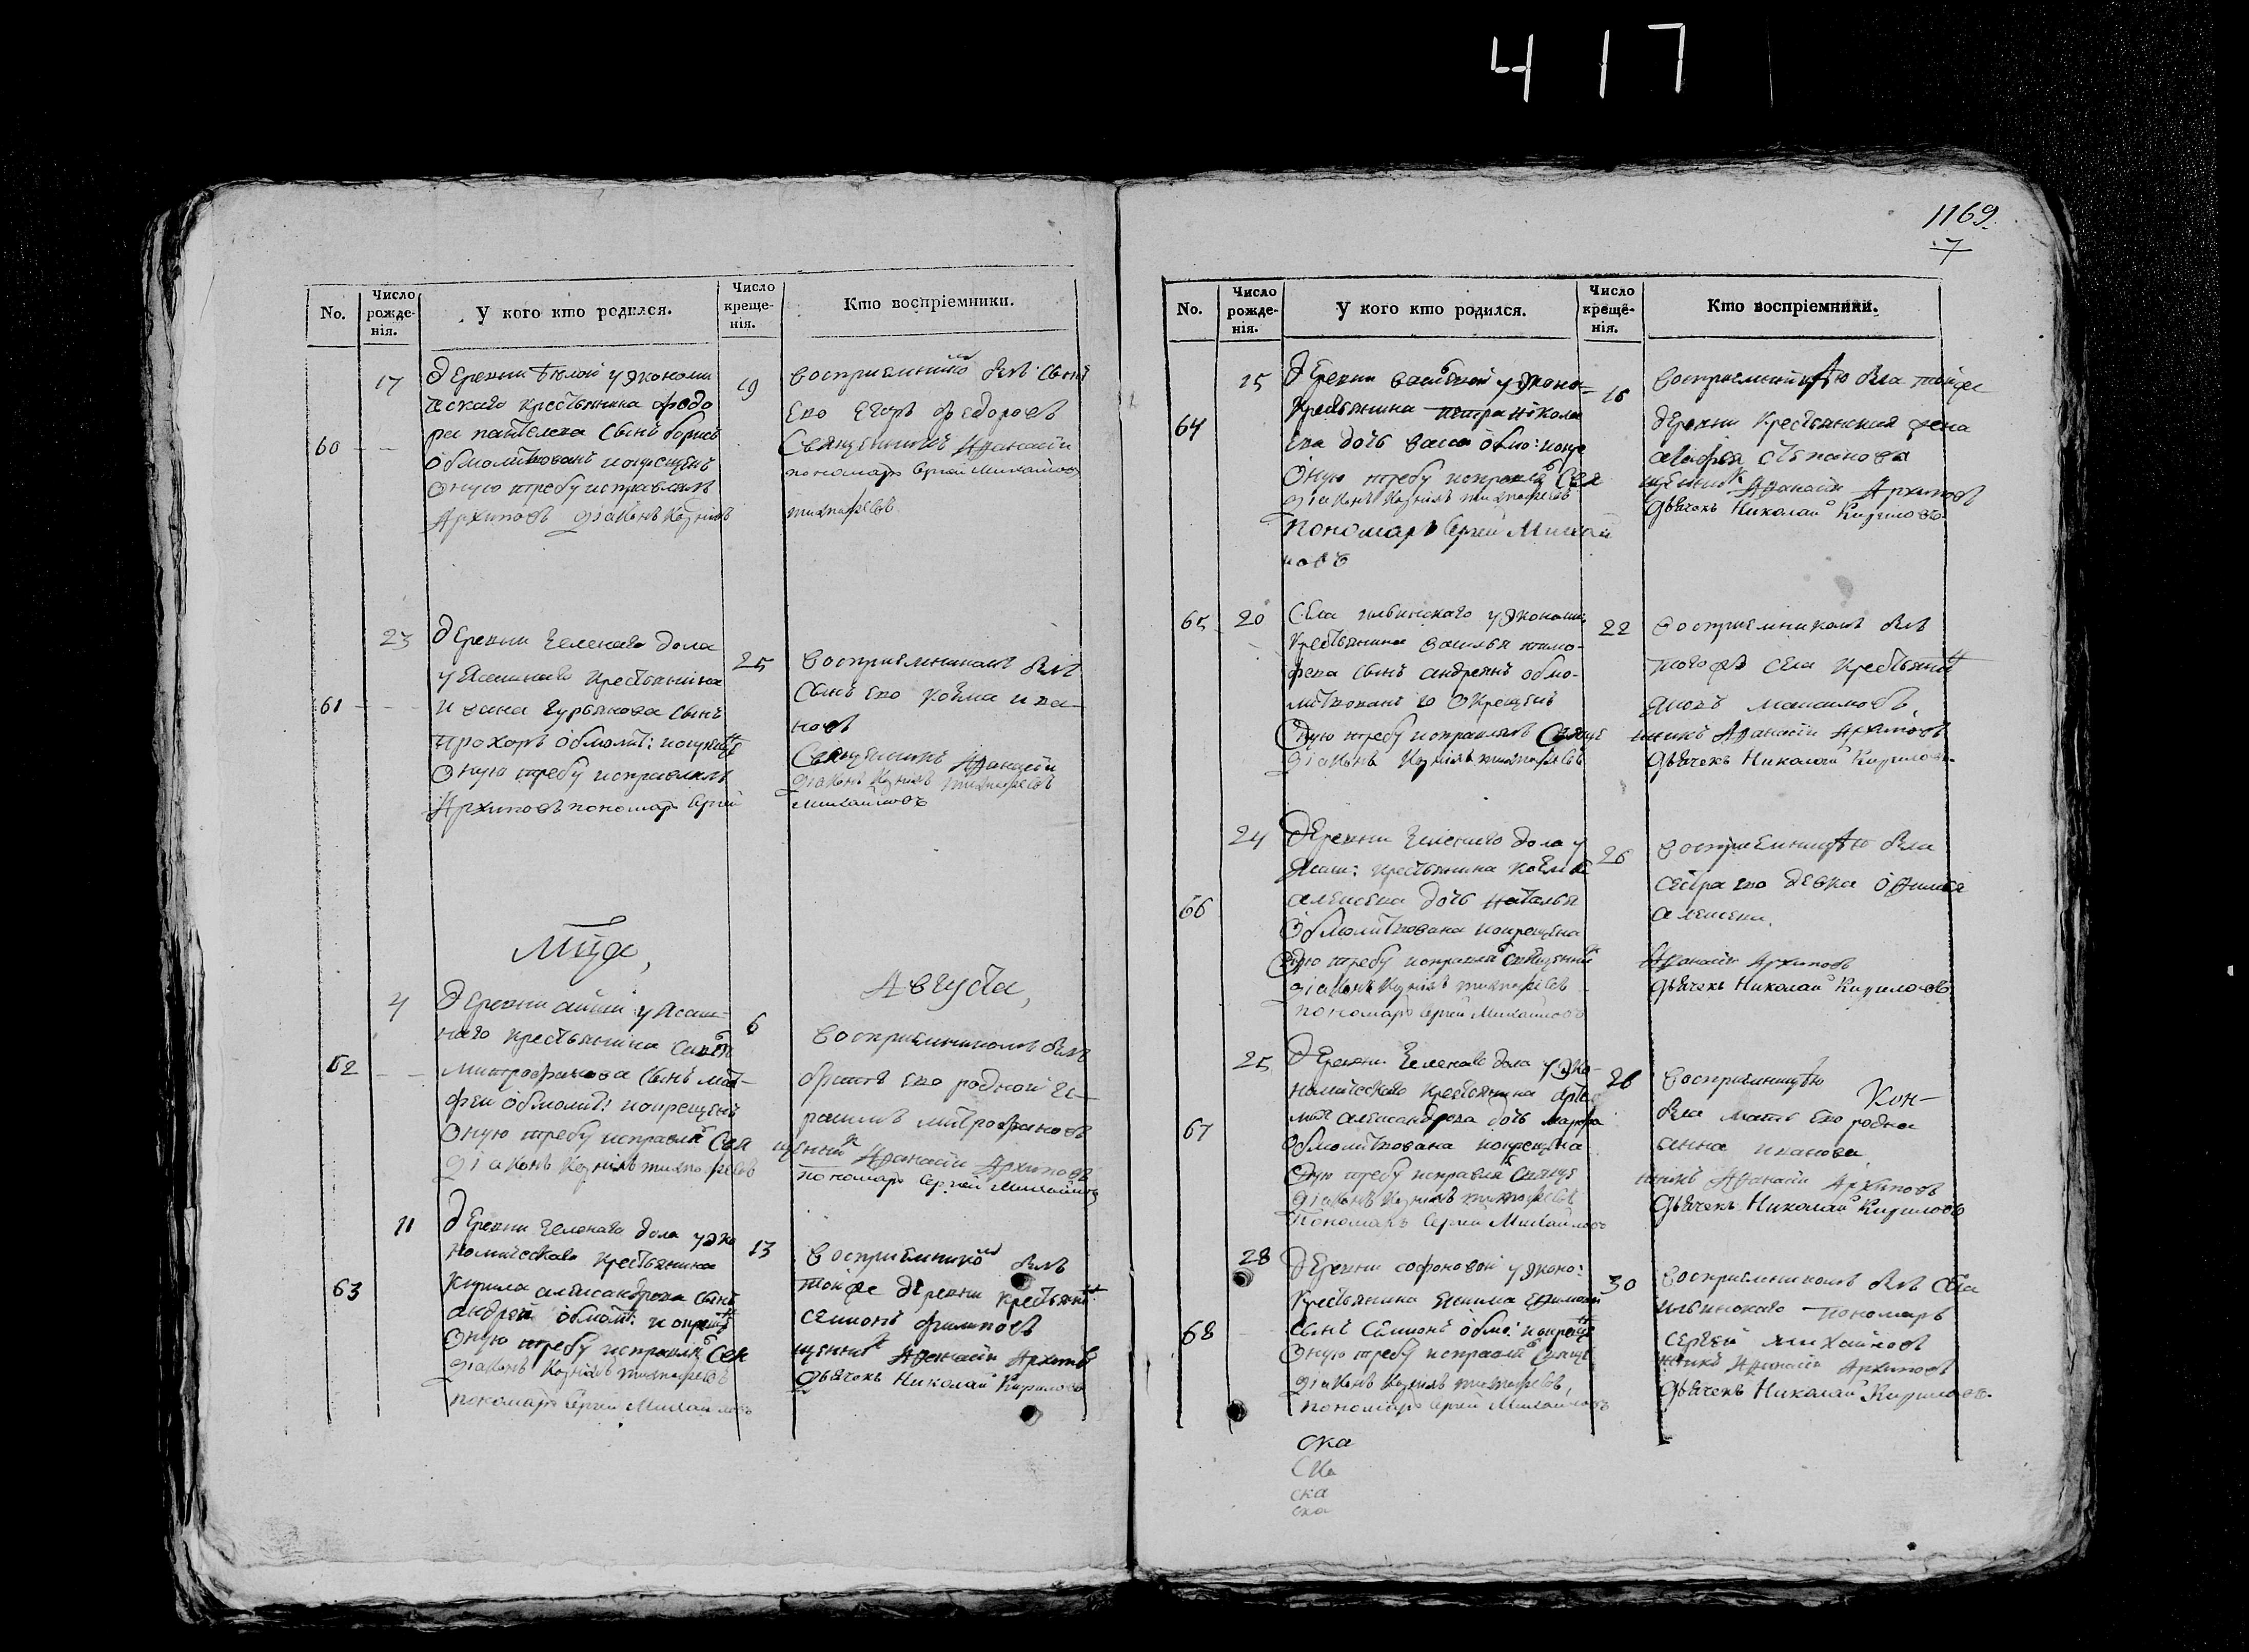 417
1169.
7
No.
Число рожденія.
У кого кто родился.
Число крещенія.
Кто воспріемники.
60
17
деревни белой у Экономи
ческаго крестьянина федо
ра пантелева сынъ борисъ
обмолитвованъ и окрещенъ
Оную требу исправлялъ
Архиповъ діаконъ
19
восприемником былъ сынъ
Ево Егоръ Федоровъ
Священникъ Афанасій
пономарь Сергей Михайловъ
тимофеевъ
61
23
деревни Зеленаго дола
у Ясашнаго крестьянина
ивана Гурьянова сынъ
прохоръ обмолит: и окрещ
Оную требу исправлялъ
Архиповъ пономарь Сергей
25
восприемникомъ былъ
сынъ Ево козма ива
новъ
Священникъ Афанасій
діаконъ тимофеевъ
Михайловъ
Мца,
Августа,
62
4
деревни у Ясаш-
наго крестьянина
митрофанова сынъ мат-
фей обмолит: и окрещенъ
Оную требу исправлял Свя
діаконъ тимофеевъ
6
восприемникомъ былъ
братъ Ево родной ге-
расимъ митрофановъ
щенник Афанасій Архиповъ
пономарь Сергей Михайловъ
63
11
деревни Зеленаго дола у эко
номическаго крестьянина
кирила александрова сынъ
андрей обмолит: и окрещ
Оную требу исправлял Свя
діаконъ тимофеевъ
пономарь Сергей Михайловъ
13
восприемником былъ
той же деревни крестьянин
семионъ филиповъ
щенник Афанасій Архиповъ
дьячокъ Николай Кириловъ
No.
Число рожденія.
У кого кто родился.
Число крещенія.
Кто воспріемники.
64
15
деревни у Эконо-
крестьянина петра никола
ева дочь васса обмо: и окре
Оную требу исправлял Свя
діаконъ тимофеевъ
пономарь Сергей Михай
ловъ
16
восприемницею была той же
деревни крестьянская жена
Степанова
щенник Афанасій Архиповъ
дьячокъ Николай Кириловъ
65
20
Села ильинскаго у Экономи:
крестьянина василья тимо-
феева сынъ андреянъ обмо-
литвованъ и окрещенъ
Оную требу исправлялъ Свяще
діаконъ тимофеевъ
22
восприемникомъ былъ
того же села крестьянин
яковъ максимовъ
нникъ Афанасій Архиповъ
дьячокъ Николай Кириловъ
66
24
деревни Зеленаго дола у
Ясаш: крестьянина козмы
алексеева дочь наталья
обмолитвована и окрещена
Оную требу исправлял священник
діаконъ тимофеевъ
пономарь Сергей Михайловъ
26
восприемницею была
сестра ево девка
алексеева
Афанасій Архиповъ
дьячокъ Николай Кириловъ
67
25
деревни Зеленаго дола у Эко-
номическаго крестьянина арте
мья александрова дочь марфа
обмолитвована и окрещена
Оную требу исправлял Свяще
діаконъ тимофеевъ
пономарь Сергей Михайловъ
26
восприемницею
Кон-
была мать Ево родна
анна иванова
нникъ Афанасій Архиповъ
дьячокъ Николай Кириловъ
68
28
деревни софоновой у эконо:
крестьянина Екима
сынъ Семионъ обмо: и окрещ
Оную требу исправлял Свяще
діаконъ тимофеевъ,
пономарь Сергей Михайловъ
30
восприемникомъ былъ села
ильинскаго пономарь
сергей михайловъ
нникъ Афанасій Архиповъ
дьячокъ Николай Кириловъ
ска
ска
ска
ска